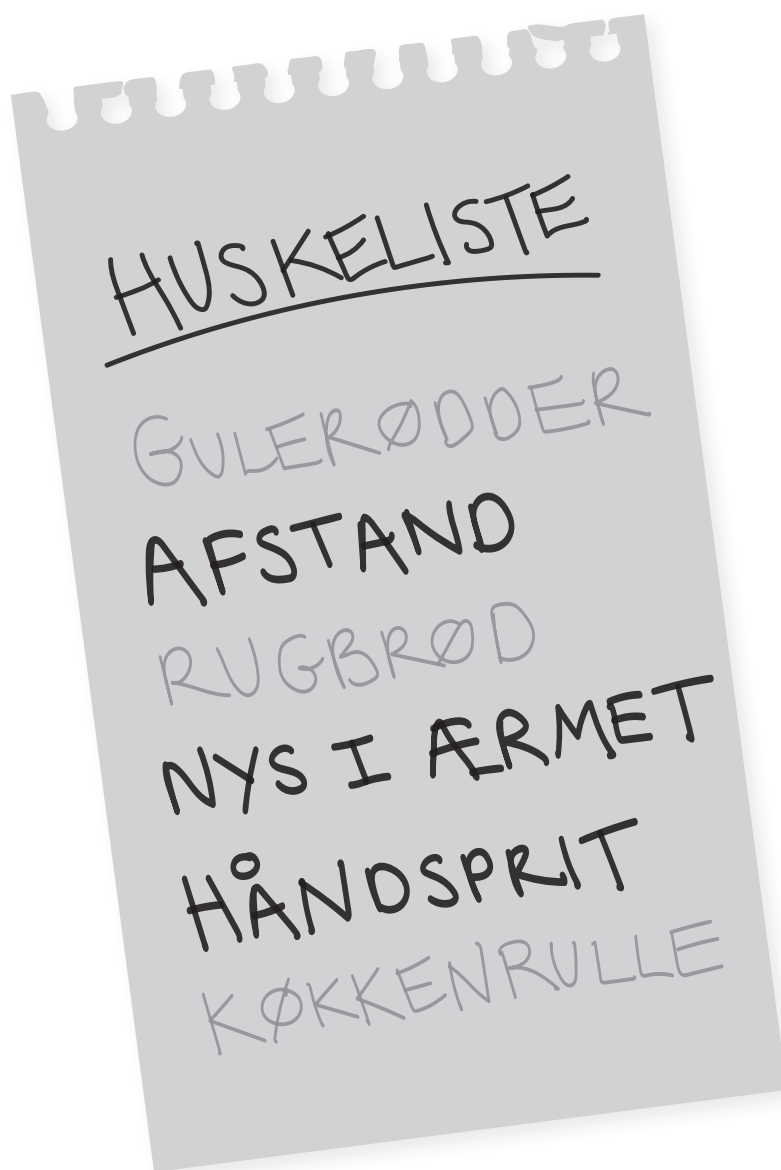 HUSKELISTE
GULERØDDER
AFSTAND
RUGBRØD
NYS I ÆRMET
HÅNDSPRIT
KØKKENRULLE